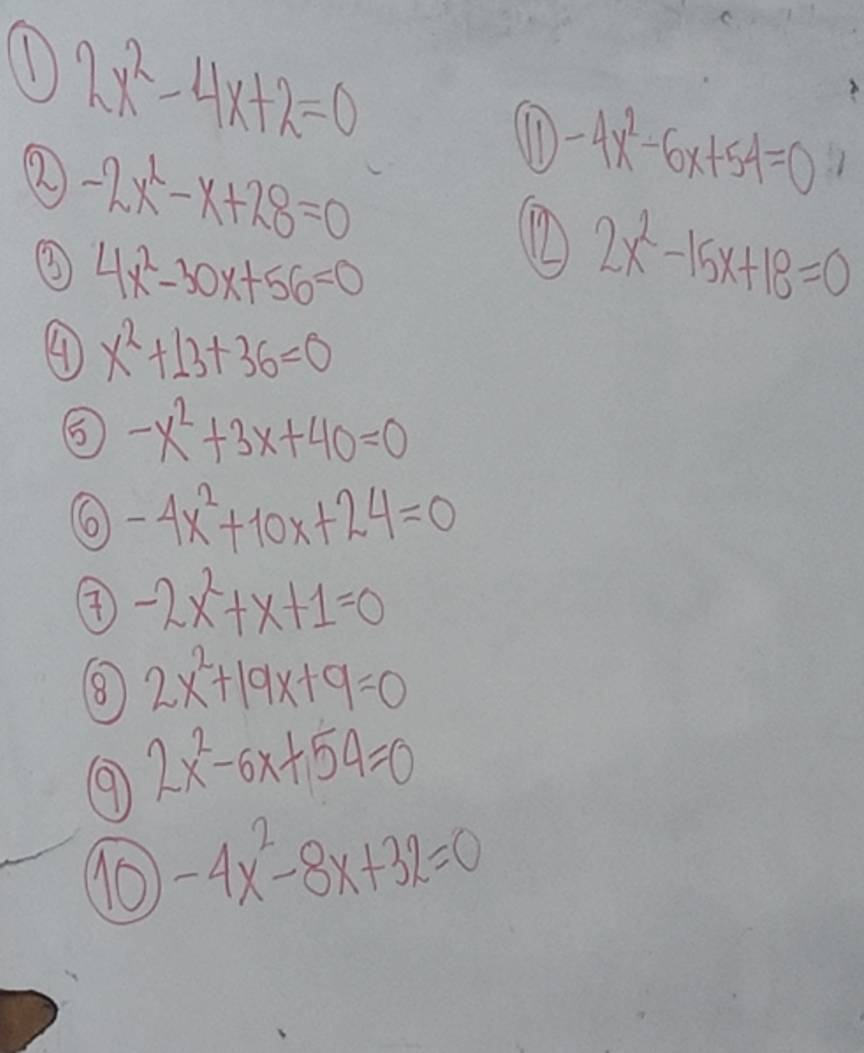 ① 2x²-4x+2=0
② -2x²-x+28=0
③ 4x²-30x+56=0
④ x²+13+36=0
⑤ -x²+3x+40=0
⑥ -4x²+10x+24=0
⑦ -2x²+x+1=0
⑧ 2x²+19x+9=0
⑨ 2x²-6x+54=0
⑩ -4x²-8x+32=0
⑪ -4x²-6x+54=0
⑫ 2x²-15x+18=0